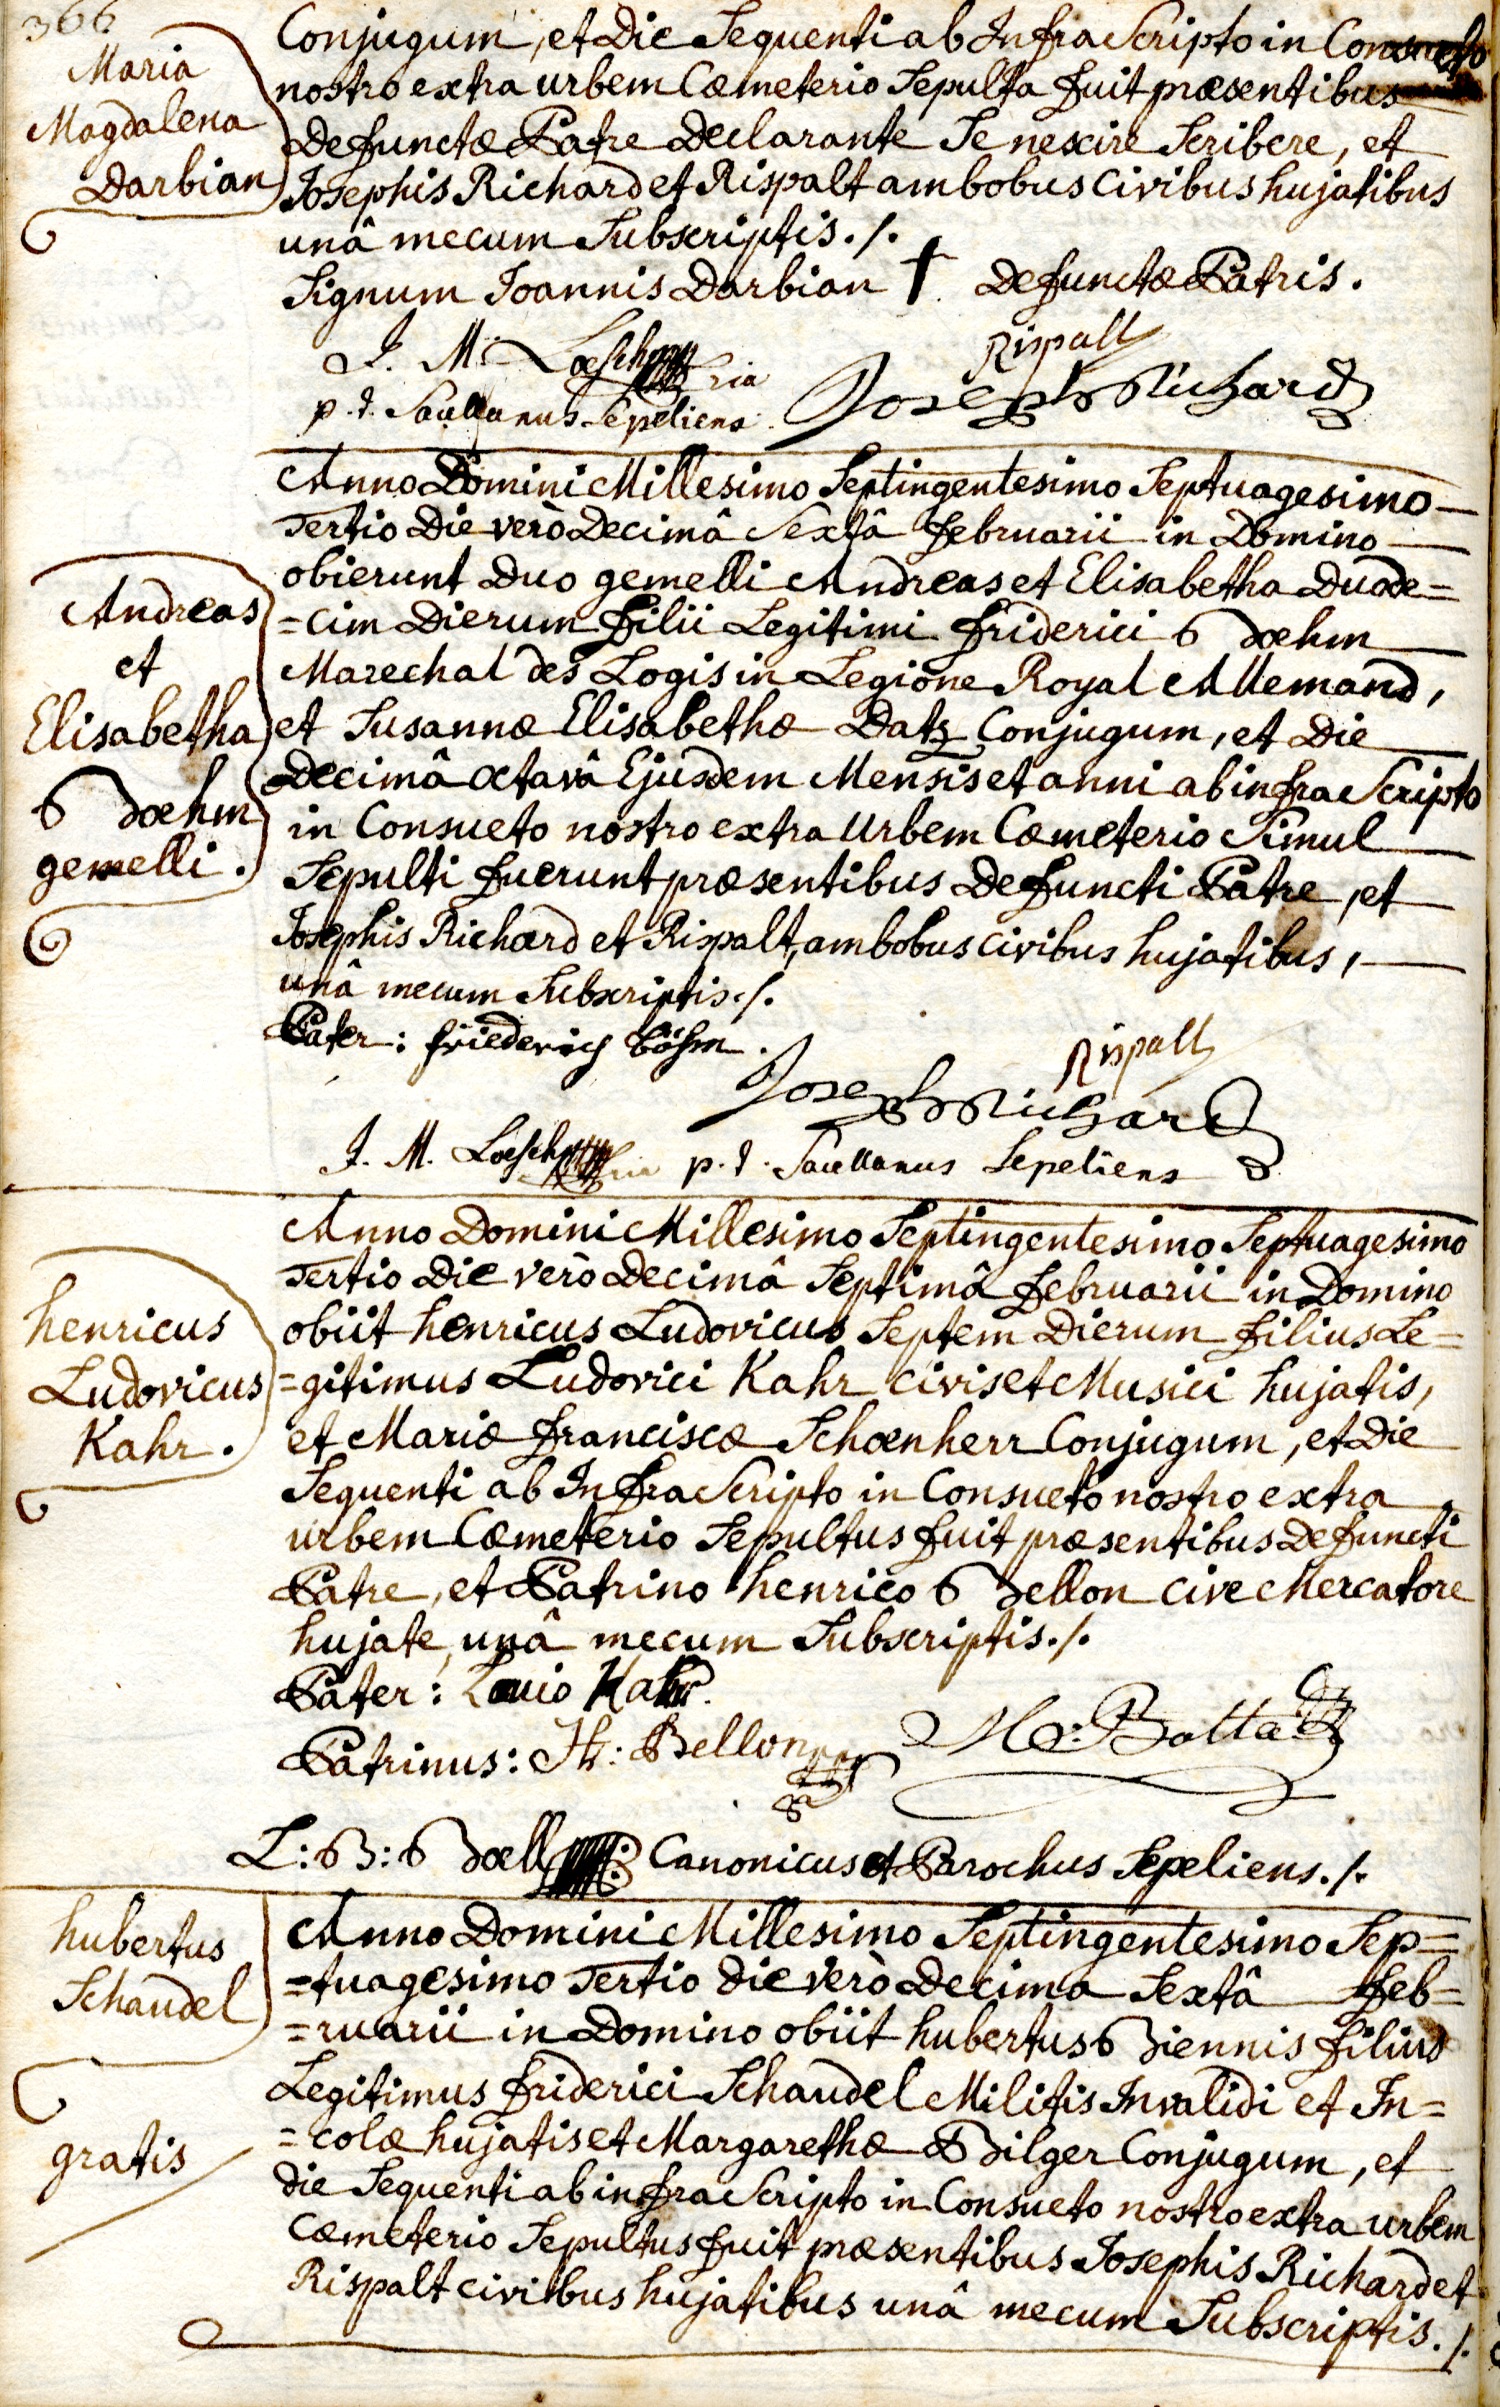 366
Maria
Magdalena
Darbian
Conjugum, et Die Sequenti ab Infra Scripto in Consueto
nostro extra urbem Cœmeterio Sepulta fuit præsentibus
Defunctæ Patre Declarante Se nescire Scribere, et
Josephis Richard et Rispalt ambobus civibus hujatibus
unâ mecum Subscriptis ./.
Signum Joannis Darbian † Defunctæ Patris.
Rispalt
J. M. Loesch
Joseph Richard
p. t. Sacellanus Sepeliens
Anno Domini Millesimo Septingentesimo Septuagesimo
Tertio Die verò Decimâ Sextâ februarii in Domino
Andreas
et
Elisabetha
Boehm
gemelli.
obierunt Duo gemelli Andreas et Elisabetha Duode=
=cim Dierum filii Legitimi friderici Boehm
Marechal des Logis in Legione Royal Allemand,
et Susannæ Elisabethæ Datz Conjugum, et Die
Decimâ octavâ Ejusdem Mensis et anni ab infra Scripto
in Consueto nostro extra Urbem Cœmeterio Simul
Sepulti fuerunt præsentibus Defuncti Patre, et
Josephis Richard et Rispalt, ambobus civibus hujatibus,
unâ mecum Subscriptis ./.
Pater: friederich böhm.
Rispalt
Joseph Richard
J. M. Loesch p. t. Sacellanus Sepeliens
Anno Domini Millesimo Septingentesimo Septuagesimo
Tertio Die verò Decimâ Septimâ februarii in Domino
henricus
Ludovicus
Kahr.
obiit henricus Ludovicus Septem Dierum filius Le=
=gitimus Ludovici Kahr civis et Musici hujatis,
et Mariæ franciscæ Schoenherr Conjugum, et Die
Sequenti ab Infra Scripto in Consueto nostro extra
urbem Cœmeterio Sepultus fuit præsentibus Defuncti
Patre, et Patrino henrico Bellon cive Mercatore
hujate, unâ mecum Subscriptis ./.
Pater: Louis Kahr.
Patrinus: H: Bellon
L: B: Boell Canonicus et Parochus Sepeliens ./.
hubertus
Schaudel
gratis
Anno Domini Millesimo Septingentesimo Sep=
=tuagesimo Tertio die verò Decima Sextâ feb=
=ruarii in Domino obiit hubertus Biennis filius
Legitimus friderici Schaudel Militis Invalidi et In=
=colæ hujatis et Margarethæ Bilger Conjugum, et
die Sequenti ab infra Scripto in Consueto nostro extra urbem
Cœmeterio Sepultus fuit præsentibus Josephis Richard et
Rispalt civibus hujatibus unâ mecum Subscriptis ./.